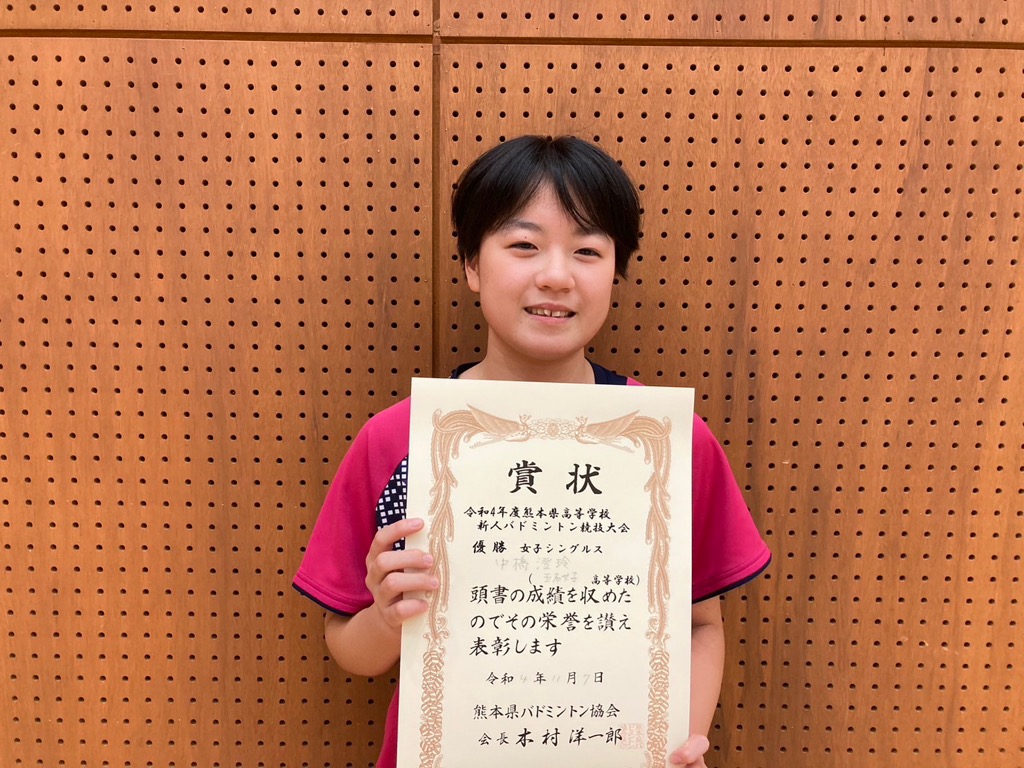 賞状
令和4年度熊本県高等学校
新人バドミントン競技大会
優勝 女子シングルス
中橋 澄玲
(玉名女子 高等学校)
頭書の成績を収めた
のでその栄誉を讃え
表彰します
令和4年11月7日
熊本県バドミントン協会
会長 木村洋一郎